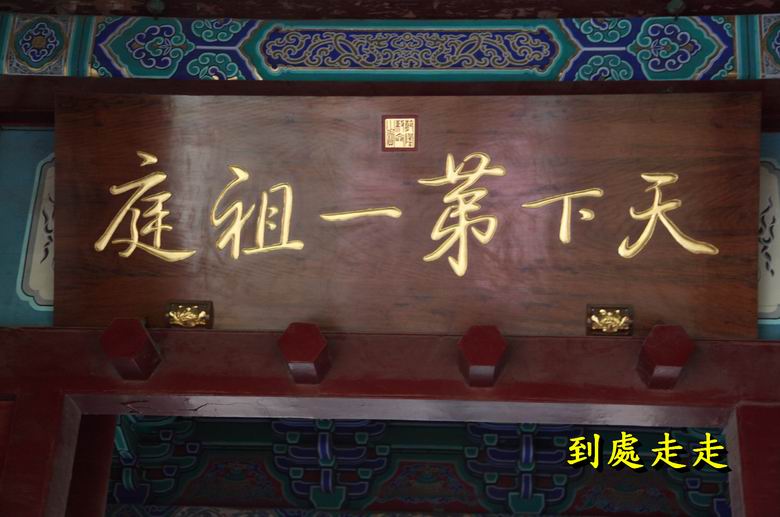 天下第一祖庭
到處走走